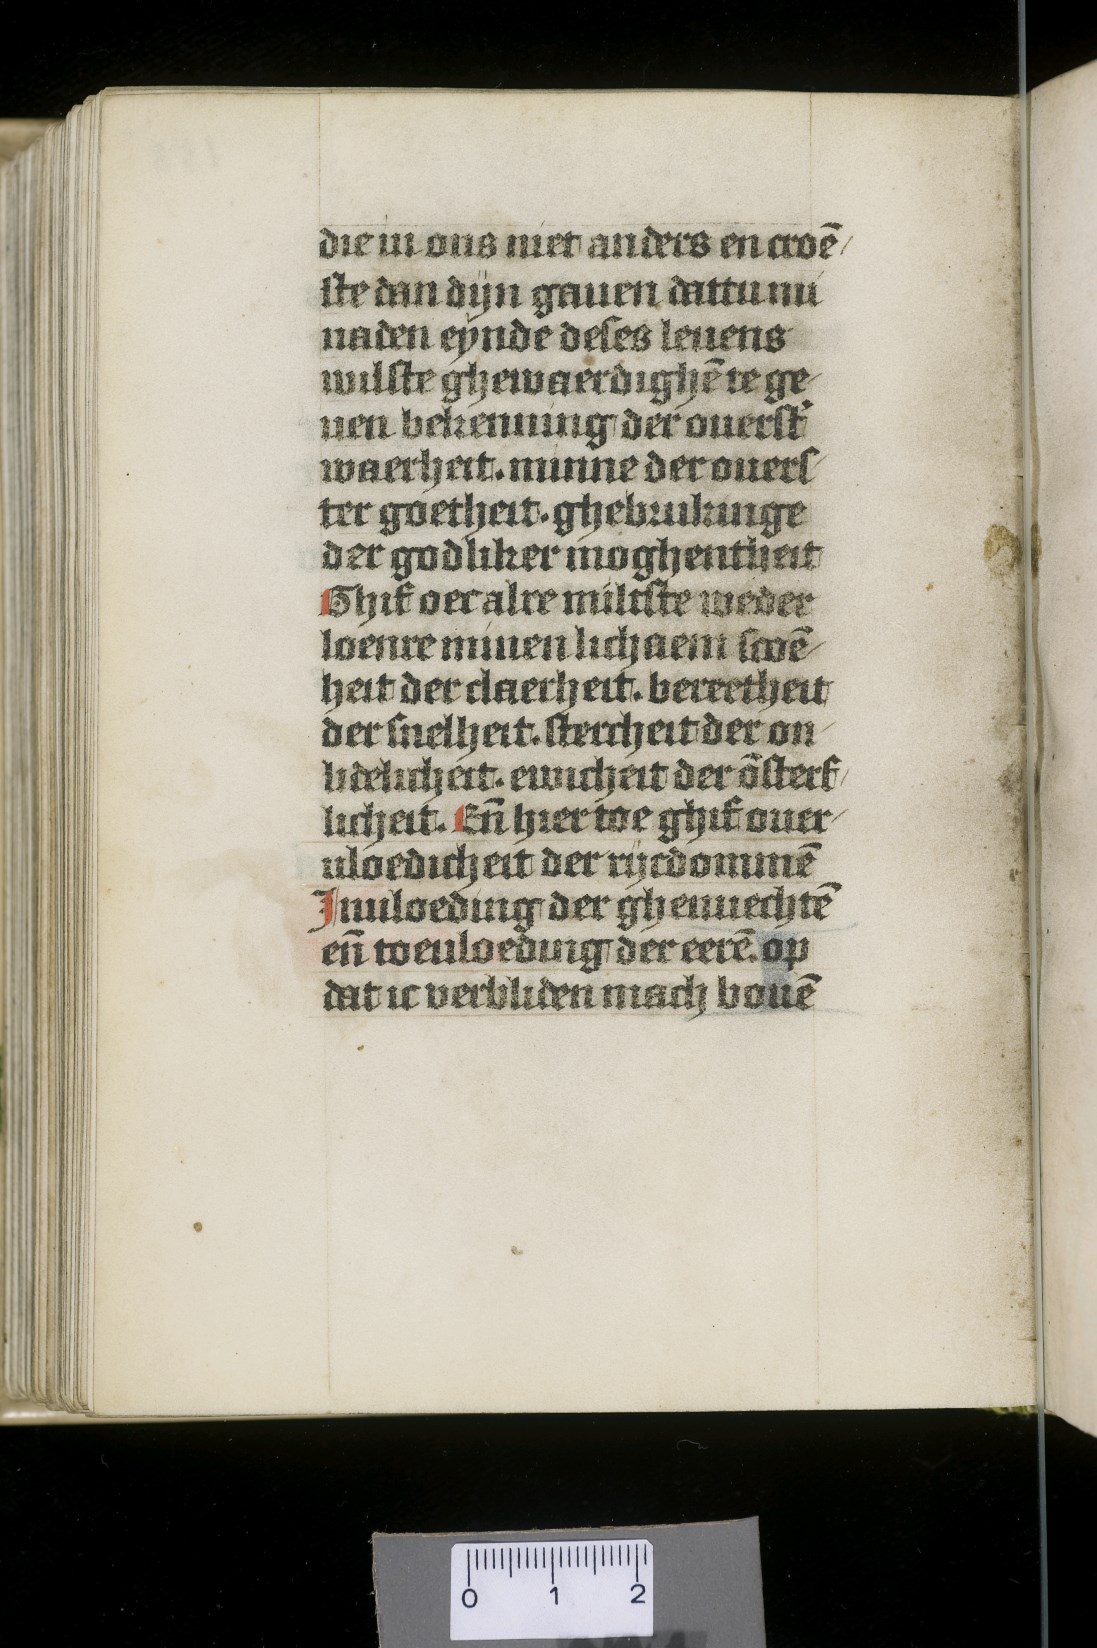 die in ons niet anders en croē/
ste dan dijn gauen dattu mi
naden eynde deses leuens
wilste ghewaerdighē te ge/
uen bekenning der ouerst'
waerheit. minne der ouers/
ter goetheit. ghebrukinge
der godliker moghentheit
Ghif oec alre miltste weder
loenre minen lichaem scoē/
heit der claerheit. bereetheit
der snelheit. stercheit der on/
lidelicheit. ewicheit der ōsterf/
licheit. Eñ hier toe ghif ouer/
uloedicheit der rijcdommē
Inuloeding der ghenuechtē
eñ toeuloeding der eerē. op
dat ic verbliden mach bouē
0 1 2